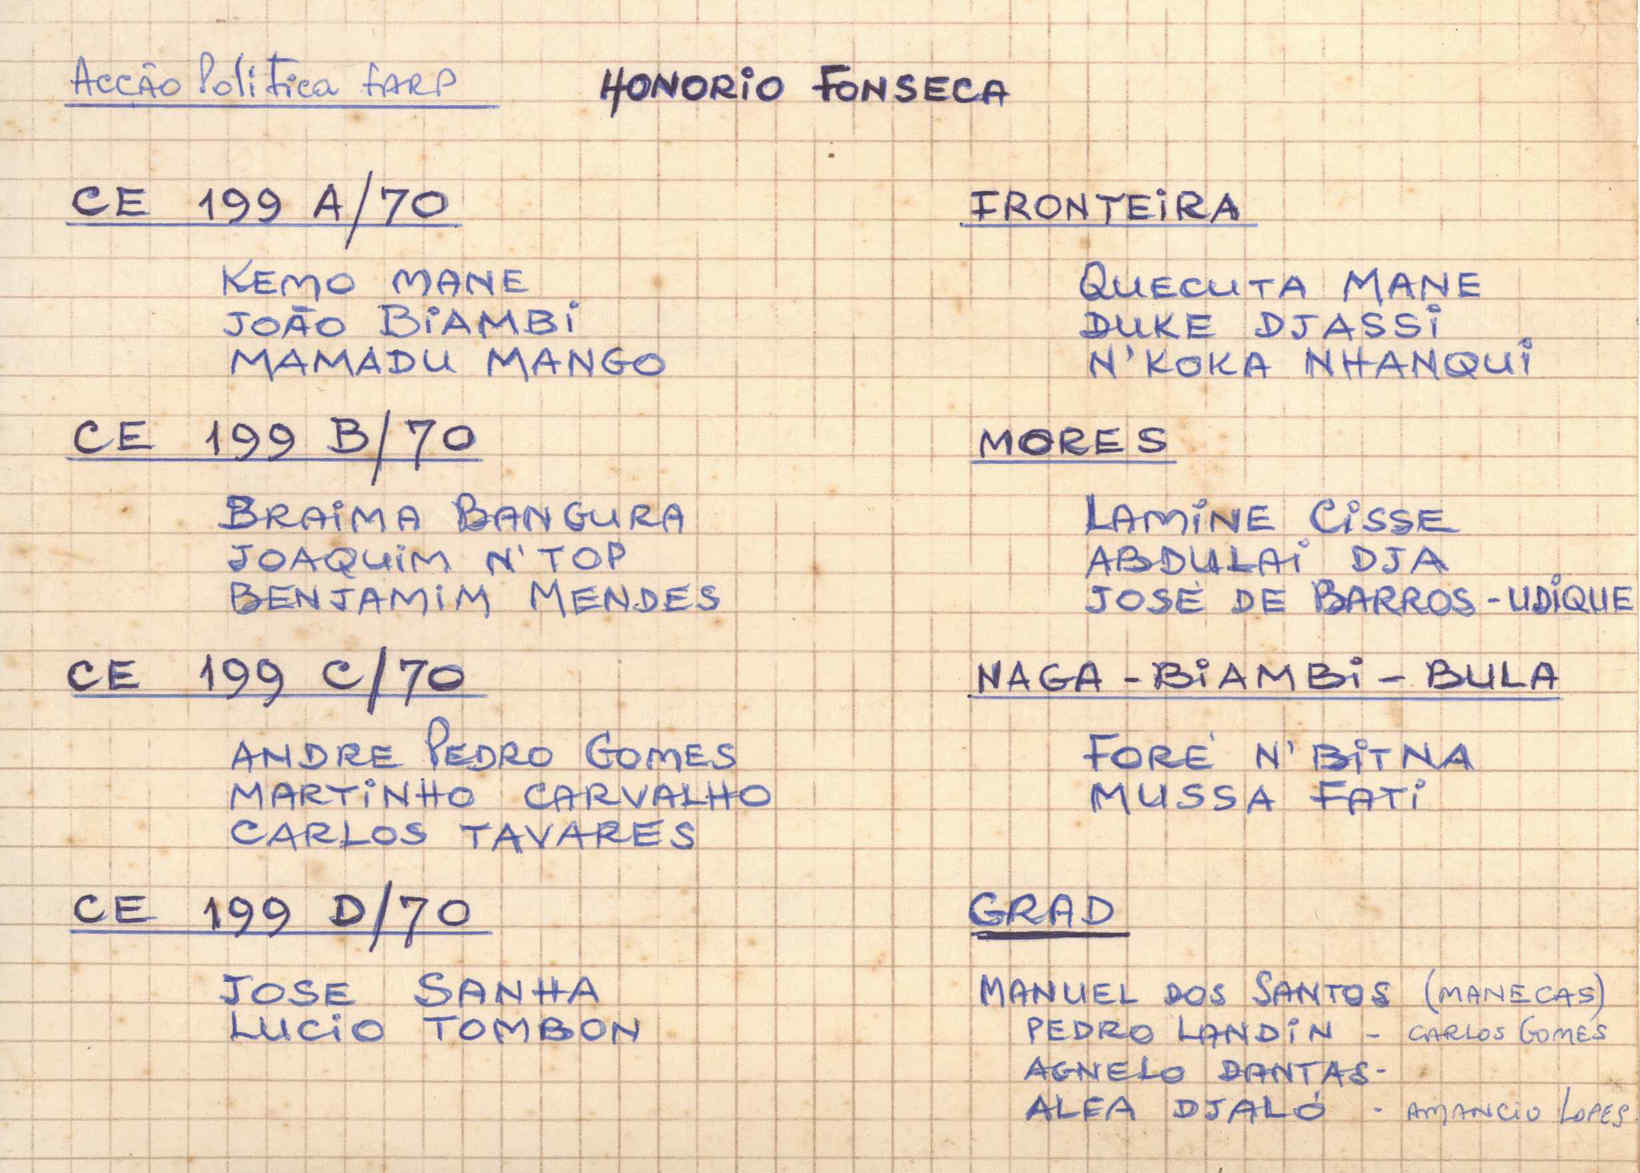 Acção Política FARP
HONORIO FONSECA
CE 199 A/70
KEMO MANE
JOÃO BIAMBI
MAMADU MANGO
CE 199 B/70
BRAIMA BANGURA
JOAQUIM N'TOP
BENJAMIM MENDES
CE 199 C/70
ANDRE PEDRO GOMES
MARTINHO CARVALHO
CARLOS TAVARES
CE 199 D/70
JOSE SANHA
LUCIO TOMBON
FRONTEIRA
QUECUTA MANE
DUKE DJASSI
N'KOKA NHANQUI
MORES
LAMINE CISSE
ABDULAI DJA
JOSÉ DE BARROS - UDIQUE
NAGA - BIAMBI - BULA
FORÉ N'BITNA
MUSSA FATI
GRAD
MANUEL DOS SANTOS (MANECAS)
PEDRO LANDIN - CARLOS GOMES
AGNELO DANTAS -
ALFA DJALÓ - AMANCIO LOPES